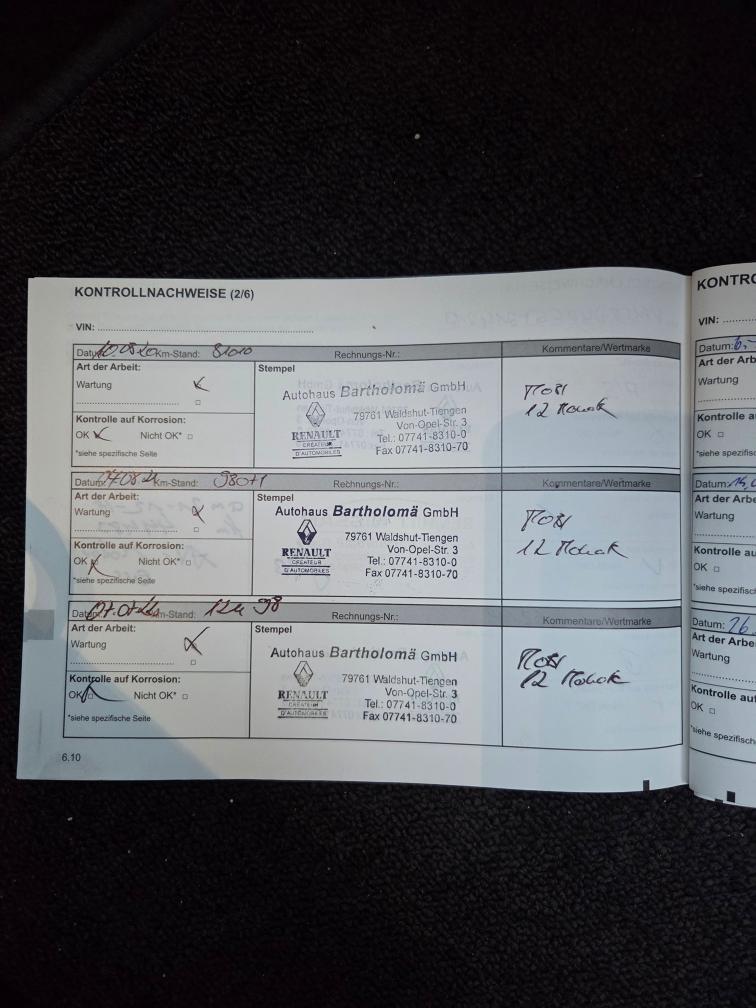 KONTROLLNACHWEISE (2/6)
VIN:
Datum: Km-Stand: 81010 Rechnungs-Nr.: Kommentare/Wertmarke
Art der Arbeit:
Wartung
Kontrolle auf Korrosion:
OK Nicht OK*
*siehe spezifische Seite
Stempel
Autohaus Bartholomä GmbH
79761 Waldshut-Tiengen
Von-Opel-Str. 3
Tel.: 07741-8310-0
Fax 07741-8310-70
RENAULT
CREATEUR
D'AUTOMOBILES
12
Datum: Km-Stand: 98071 Rechnungs-Nr.: Kommentare/Wertmarke
Art der Arbeit:
Wartung
Kontrolle auf Korrosion:
OK Nicht OK*
*siehe spezifische Seite
Stempel
Autohaus Bartholomä GmbH
79761 Waldshut-Tiengen
Von-Opel-Str. 3
Tel.: 07741-8310-0
Fax 07741-8310-70
RENAULT
CREATEUR
D'AUTOMOBILES
12
Km-Stand: Rechnungs-Nr.: Kommentare/Wertmarke
Art der Arbeit:
Wartung
Kontrolle auf Korrosion:
OK Nicht OK*
*siehe spezifische Seite
Stempel
Autohaus Bartholomä GmbH
79761 Waldshut-Tiengen
Von-Opel-Str. 3
Tel.: 07741-8310-0
Fax 07741-8310-70
RENAULT
CREATEUR
D'AUTOMOBILES
12
6.10
KONTRO
VIN:
Datum: 6.
Art der Arb
Wartung
Kontrolle a
OK
*siehe spezifisc
Datum:
Art der Arbe
Wartung
Kontrolle au
OK
*siehe spezifisc
Datum: 26.
Art der Arbe
Wartung
Kontrolle auf
OK
*siehe spezifisch